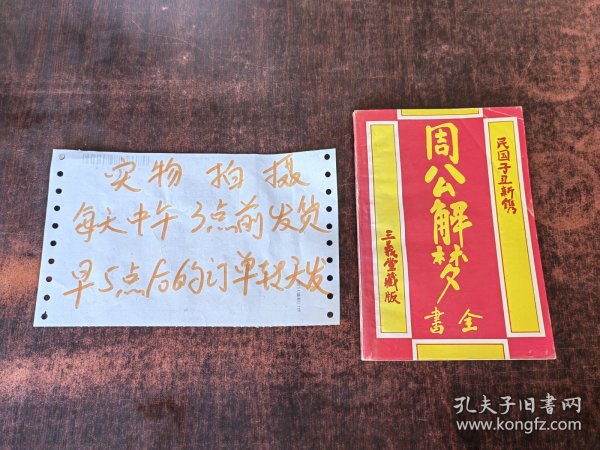 实物拍摄
每天中午3点前发货
早5点后的订单转天发
民国子丑新镌
周公解梦
全书
三义堂藏版
孔夫子旧书网
www.kongfz.com